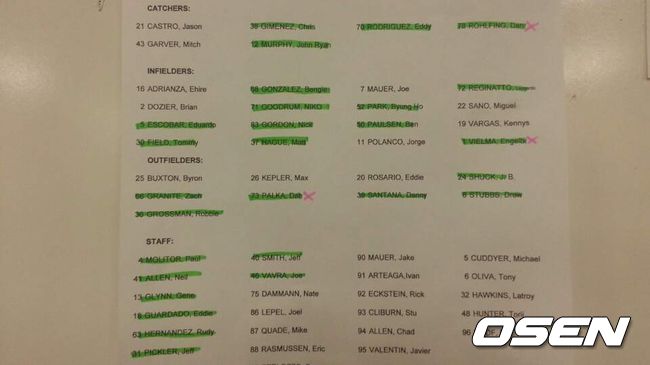 CATCHERS:
21 CASTRO, Jason 38 GIMENEZ, Chris 70 RODRIGUEZ, Eddy 78 ROHLFING, Dan
43 GARVER, Mitch 12 MURPHY, John Ryan
INFIELDERS:
16 ADRIANZA, Ehire 68 GONZALEZ, Bengie 7 MAUER, Joe 72 REGINATTO,
2 DOZIER, Brian 71 GOODRUM, NIKO 52 PARK, Byung Ho 22 SANO, Miguel
5 ESCOBAR, Eduardo 83 GORDON, Nick 50 PAULSEN, Ben 19 VARGAS, Kennys
30 FIELD, Tommy 37 HAGUE, Matt 11 POLANCO, Jorge 1 VIELMA, Engelb
OUTFIELDERS:
25 BUXTON, Byron 26 KEPLER, Max 20 ROSARIO, Eddie 24 SHUCK, J. B.
66 GRANITE, Zach 73 PALKA, Dan 39 SANTANA, Danny 6 STUBBS, Drew
36 GROSSMAN, Robbie
STAFF:
4 MOLITOR, Paul 40 SMITH, Jeff 90 MAUER, Jake 5 CUDDYER, Michael
41 ALLEN, Neil 46 VAVRA, Joe 91 ARTEAGA,Ivan 6 OLIVA, Tony
13 GLYNN, Gene 75 DAMMANN, Nate 92 ECKSTEIN, Rick 32 HAWKINS, Latroy
18 GUARDADO, Eddie 86 LEPEL, Joel 93 CLIBURN, Stu 48 HUNTER, Torii
63 HERNANDEZ, Rudy 87 QUADE, Mike 94 ALLEN, Chad 96
31 PICKLER, Jeff 88 RASMUSSEN, Eric 95 VALENTIN, Javier
OSEN